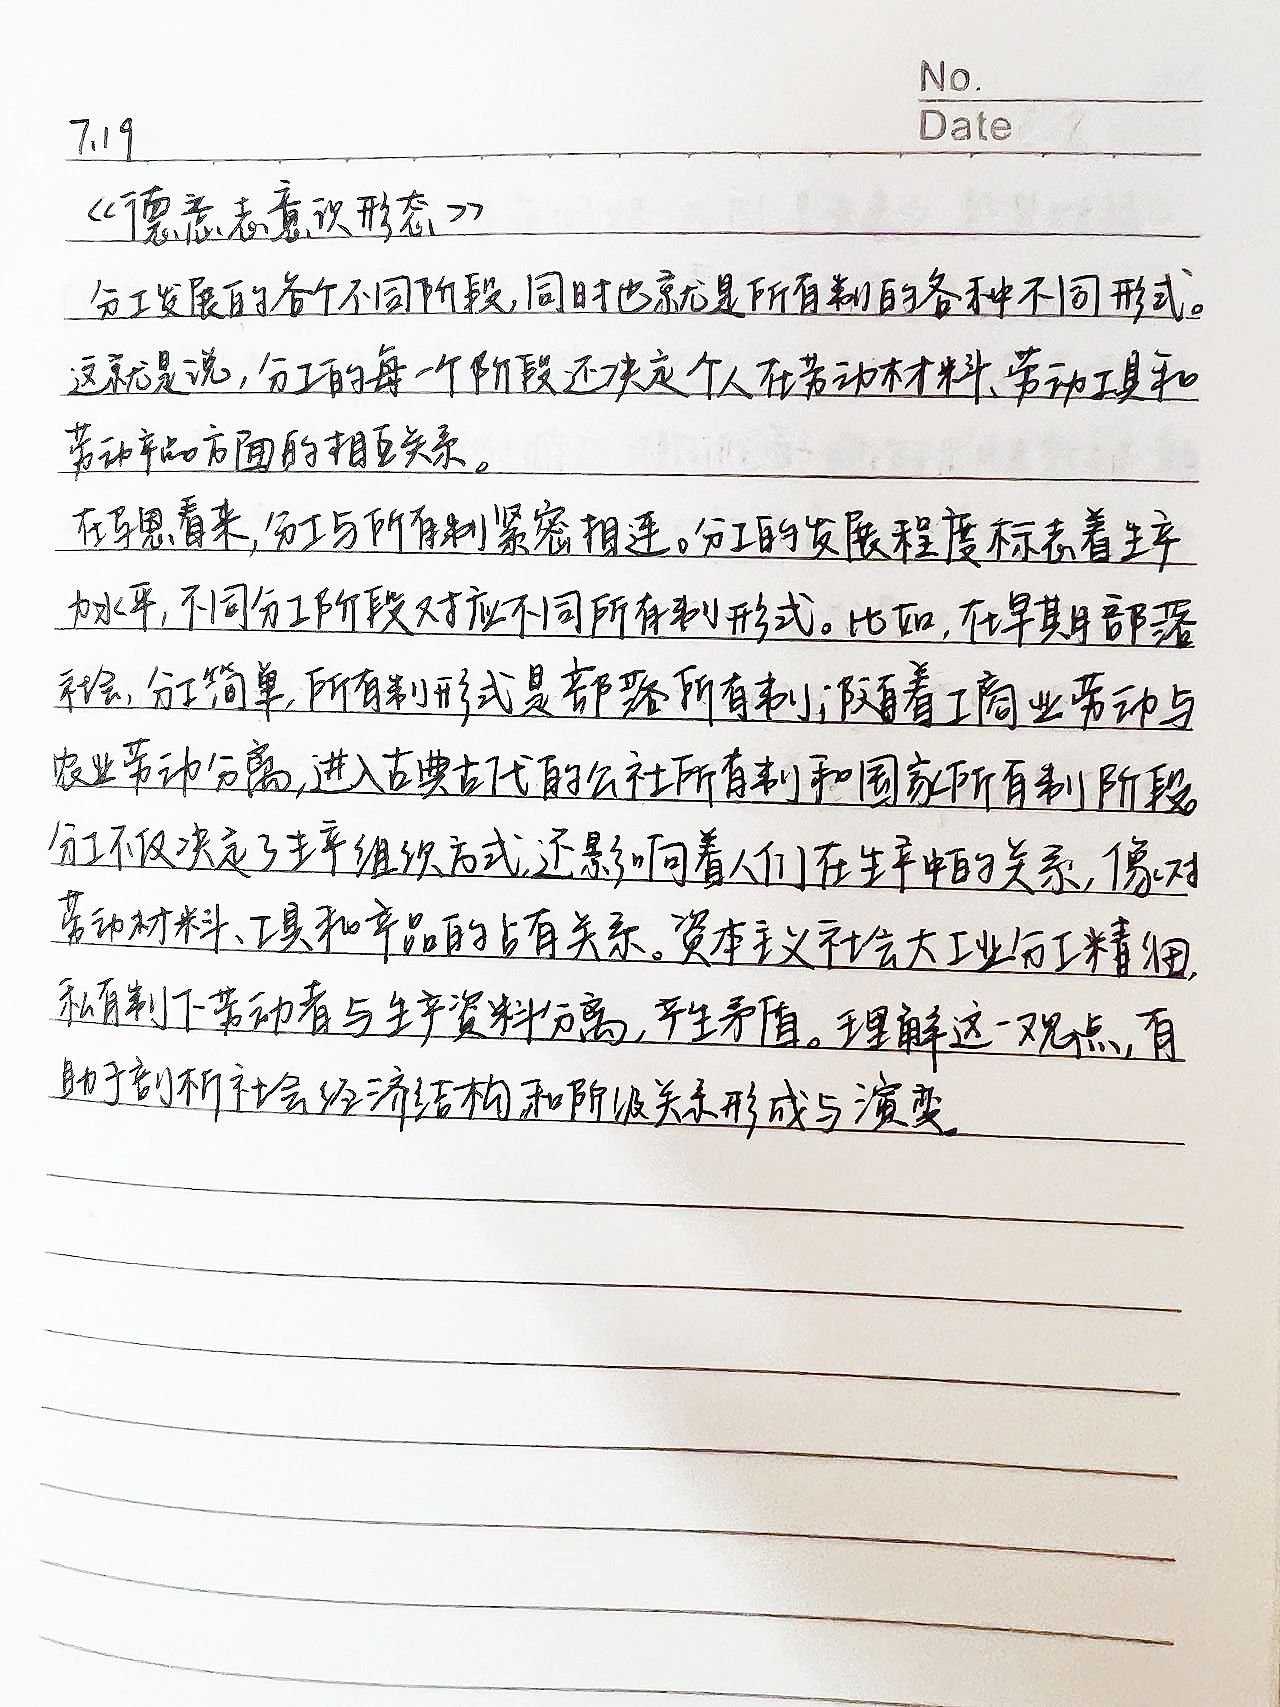 No.
Date
7.19
《德意志意识形态》
分工发展的各个不同阶段,同时也就是所有制的各种不同形式。
这就是说,分工的每一个阶段还决定个人在劳动材料、劳动工具和
劳动产品方面的相互关系。
在马恩看来,分工与所有制紧密相连。分工的发展程度标志着生产
力水平,不同分工阶段对应不同所有制形式。比如,在早期部落
社会,分工简单,所有制形式是部落所有制;随着工商业劳动与
农业劳动分离,进入古典古代的公社所有制和国家所有制阶段。
分工不仅决定了生产组织方式,还影响着人们在生产中的关系,像对
劳动材料、工具和产品的占有关系。资本主义社会大工业分工精细,
私有制下劳动者与生产资料分离,产生矛盾。理解这一观点,有
助于剖析社会经济结构和阶级关系形成与演变。